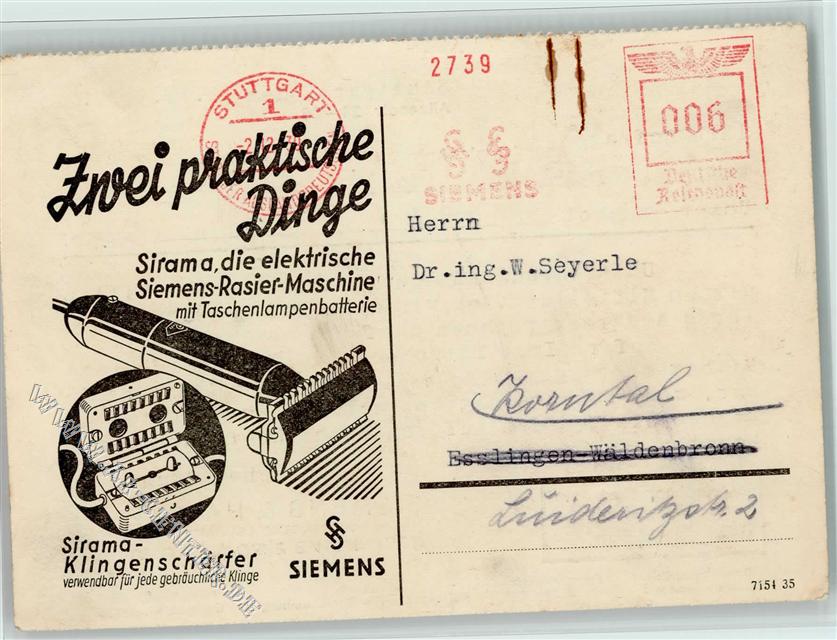 2739
STUTTGART
1
006
Deutsche
Reichspost
SIEMENS
Zwei praktische
Dinge
Sirama, die elektrische
Siemens-Rasier-Maschine
mit Taschenlampenbatterie
Sirama-
Klingenschärfer
verwendbar für jede gebräuchliche Klinge
SIEMENS
Herrn
Dr.ing.W.Seyerle
Korntal
Esslingen-Wäldenbronn
Lüderitzstr. 2
7154 35